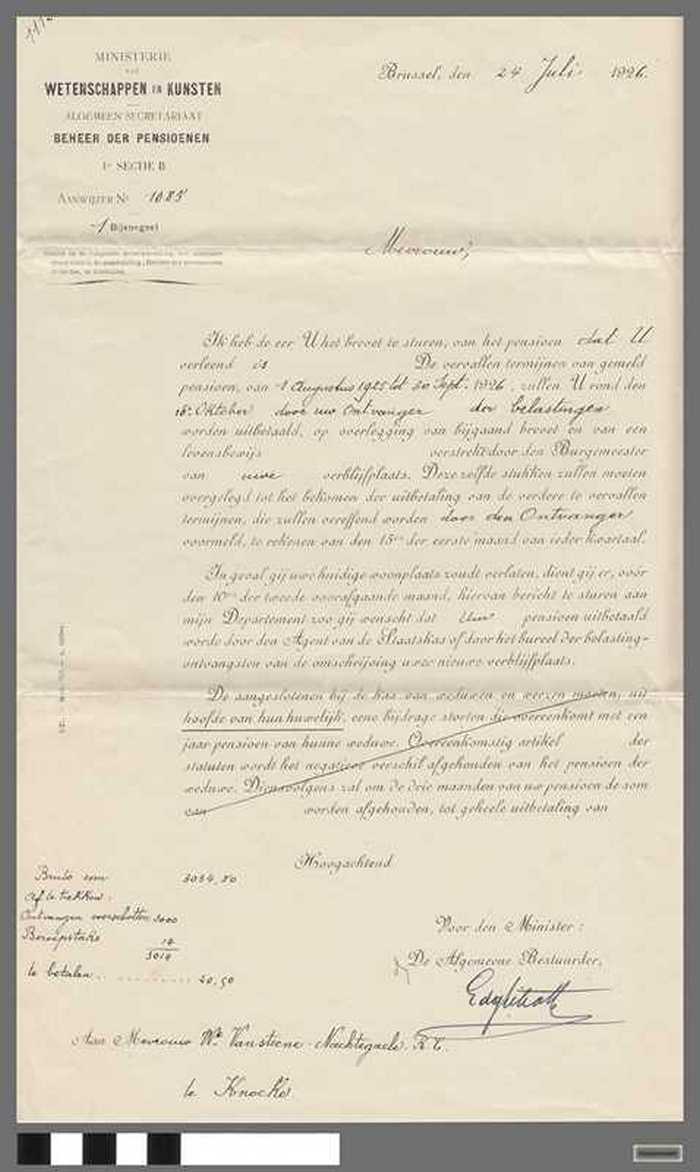 MINISTERIE
VAN
WETENSCHAPPEN EN KUNSTEN
ALGEMEEN SECRETARIAAT
BEHEER DER PENSIOENEN
1e SECTIE B
AANWIJZER Nr 1085
1 Bijgevoegd
Brussel, den 24 Juli 1926.
Mevrouw,
Ik heb de eer U het brevet te sturen, van het pensioen dat U
verleend is De vervallen termijnen van gemeld
pensioen, van 1 Augustus 1925 tot 30 Sept. 1926, zullen U rond den
15n Oktober door uw Ontvanger der belastingen
worden uitbetaald, op overlegging van bijgaand brevet en van een
levensbewijs verstrekt door den Burgemeester
van uwe verblijfplaats. Deze zelfde stukken zullen moeten
overgelegd tot het bekomen der uitbetaling van de verdere te vervallen
termijnen, die zullen vereffend worden door den Ontvanger
voormeld, te rekenen van den 15en der eerste maand van ieder kwartaal.
In geval gij uwe huidige woonplaats zoudt verlaten, dient gij er, vóór
den 10en der tweede voorafgaande maand, hiervan bericht te sturen aan
mijn Departement zoo gij wenscht dat Uw pensioen uitbetaald
worde door den Agent van de Staatskas of door het bureel der belasting-
ontvangsten van de omschrijving uwer nieuwe verblijfplaats.
De aangeslotenen bij de kas van weduwen en weezen moeten, uit
hoofde van hun huwelijk, eene bijdrage storten die overeenkomt met een
jaar pensioen van hunne weduwe. Overeenkomstig artikel der
statuten wordt het negatieve verschil afgehouden van het pensioen der
weduwe. Dienvolgens zal om de drie maanden van uw pensioen de som
van worden afgehouden, tot geheele uitbetaling van
Hoogachtend
Bruto som 3034,50
Af te trekken:
Ontvangen voorschotten 3000
Beroepstaks 14
3014
te betalen 20,50
Voor den Minister:
De Algemeene Bestuurder,
Aan Mevrouw We Vansteene-Nachtegaele. R. T.
te Knocke